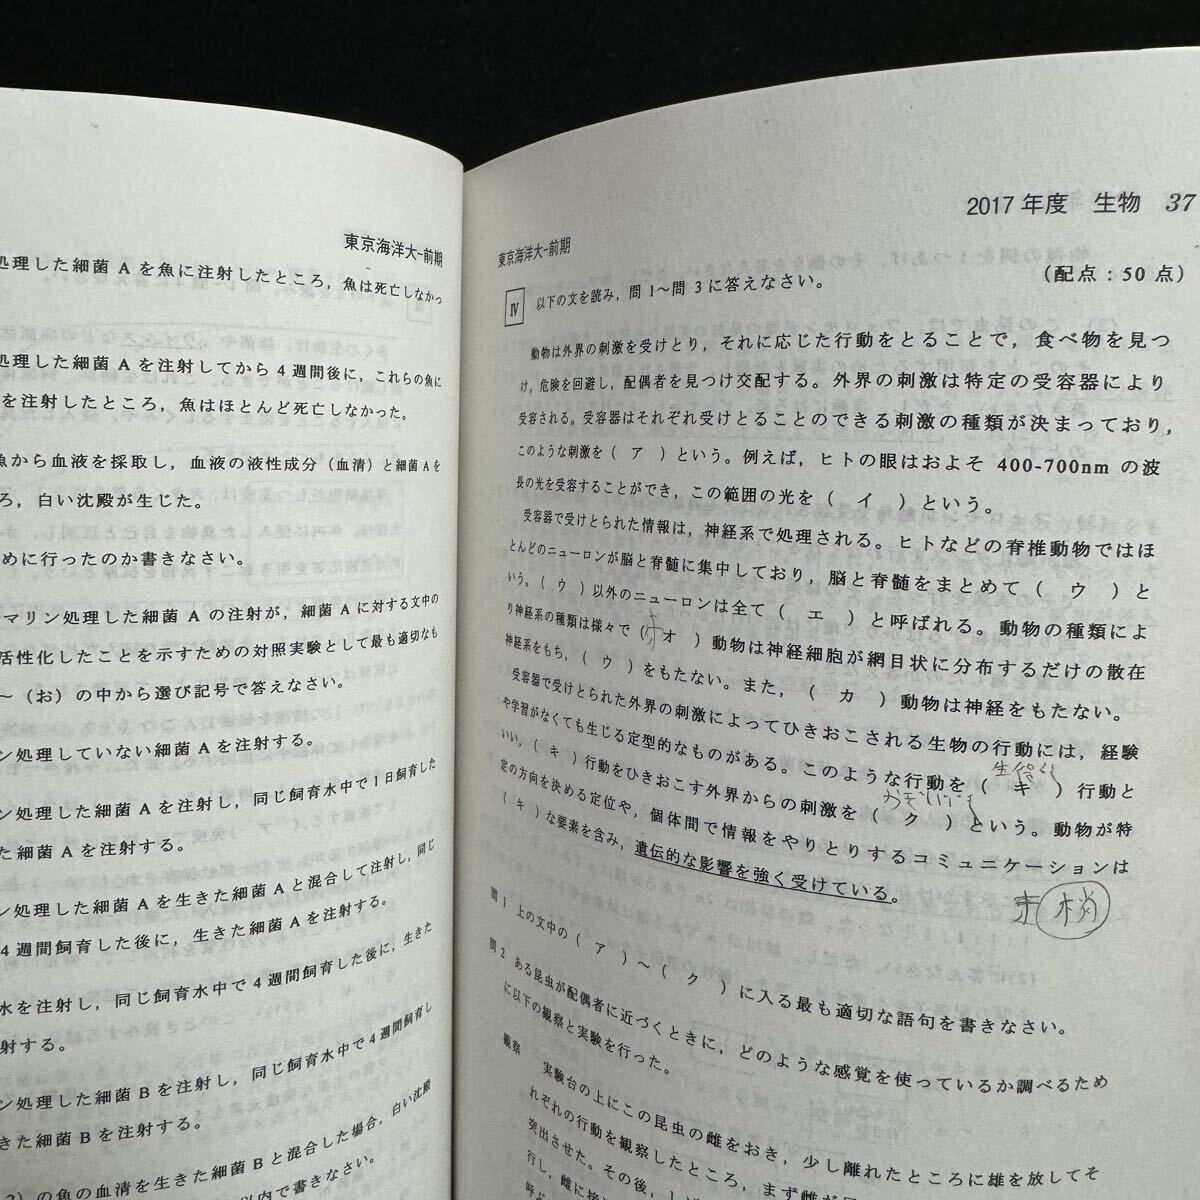 東京海洋大-前期
処理した細菌 A を魚に注射したところ，魚は死亡しなかっ
処理した細菌 A を注射してから 4 週間後に，これらの魚に
を注射したところ，魚はほとんど死亡しなかった。
魚から血液を採取し，血液の液性成分（血清）と細菌 A を
ろ，白い沈殿が生じた。
めに行ったのか書きなさい。
マリン処理した細菌 A の注射が，細菌 A に対する文中の
活性化したことを示すための対照実験として最も適切なも
～（お）の中から選び記号で答えなさい。
ン処理していない細菌 A を注射する。
ン処理した細菌 A を注射し，同じ飼育水中で 1 日飼育した
た細菌 A を注射する。
ン処理した細菌 A を生きた細菌 A と混合して注射し，同じ
4 週間飼育した後に，生きた細菌 A を注射する。
水を注射し，同じ飼育水中で 4 週間飼育した後に，生きた
射する。
ン処理した細菌 B を注射し，同じ飼育水中で 4 週間飼育し
きた細菌 B を注射する。
生きた細菌 B と混合した場合，白い沈殿
の魚の血清を
以内で書きなさい。
2017 年度　生物　37
東京海洋大-前期
Ⅳ　以下の文を読み，問 1～問 3 に答えなさい。　（配点：50 点）
動物は外界の刺激を受けとり，それに応じた行動をとることで，食べ物を見つ
け，危険を回避し，配偶者を見つけ交配する。外界の刺激は特定の受容器により
受容される。受容器はそれぞれ受けとることのできる刺激の種類が決まっており，
このような刺激を（　ア　）という。例えば，ヒトの眼はおよそ 400-700nm の波
長の光を受容することができ，この範囲の光を（　イ　）という。
受容器で受けとられた情報は，神経系で処理される。ヒトなどの脊椎動物ではほ
とんどのニューロンが脳と脊髄に集中しており，脳と脊髄をまとめて（　ウ　）と
いう。（　ウ　）以外のニューロンは全て（　エ　）と呼ばれる。動物の種類によ
り神経系の種類は様々で（　オ　）動物は神経細胞が網目状に分布するだけの散在
神経系をもち，（　ウ　）をもたない。また，（　カ　）動物は神経をもたない。
受容器で受けとられた外界の刺激によってひきおこされる生物の行動には，経験
や学習がなくても生じる定型的なものがある。このような行動を（　キ　）行動と
いい，（　キ　）行動をひきおこす外界からの刺激を（　ク　）という。動物が特
定の方向を決める定位や，個体間で情報をやりとりするコミュニケーションは
（　キ　）な要素を含み，遺伝的な影響を強く受けている。
梢
問 1　上の文中の（　ア　）～（　ク　）に入る最も適切な語句を書きなさい。
問 2　ある昆虫が配偶者に近づくときに，どのような感覚を使っているか調べるため
に以下の観察と実験を行った。
観察　実験台の上にこの昆虫の雌をおき，少し離れたところに雄を放してそ
れぞれの行動を観察したところ，まず雌が
突出させた。その後，し
行し，雌に接